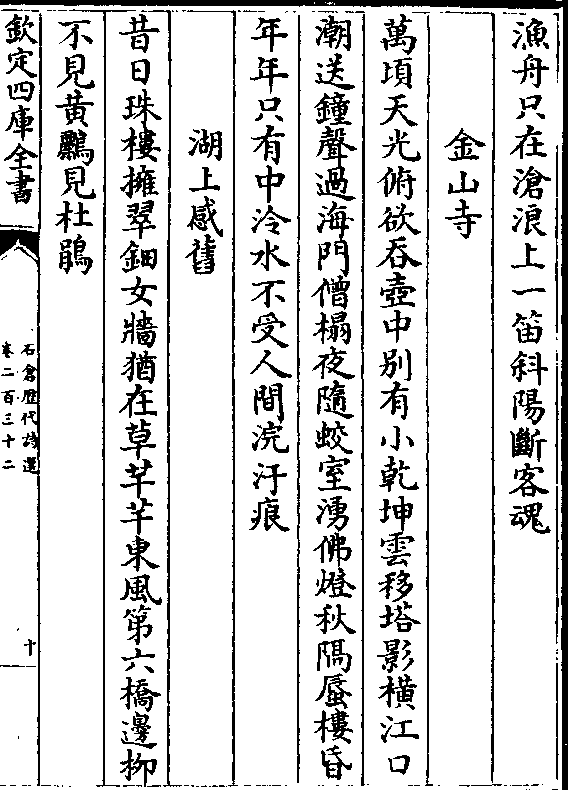 漁舟只在滄浪上一笛斜陽斷客魂
金山寺
萬頃天光俯欲吞壺中別有小乾坤雲移塔影橫江口
潮送鐘聲過海門僧榻夜隨蛟室湧佛燈秋隔蜃樓昏
年年只有中泠水不受人間浣汙痕
湖上感舊
昔日珠樓擁翠鈿女牆猶在草芊芊東風第六橋邊柳
不見黃鸝見杜鵑
欽定四庫全書
石倉歷代詩選
卷二百三十二
十